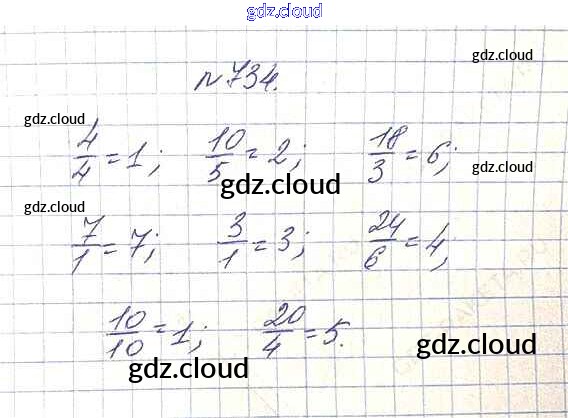 gdz.cloud
gdz.cloud
gdz.cloud
№734.
gdz.cloud
gdz.cloud
4/4 = 1; 10/5 = 2; 18/3 = 6;
gdz.cloud
gdz.cloud
gdz.cloud
7/1 = 7; 3/1 = 3; 24/6 = 4;
10/10 = 1; 20/4 = 5.
gdz.cloud
gdz.cloud